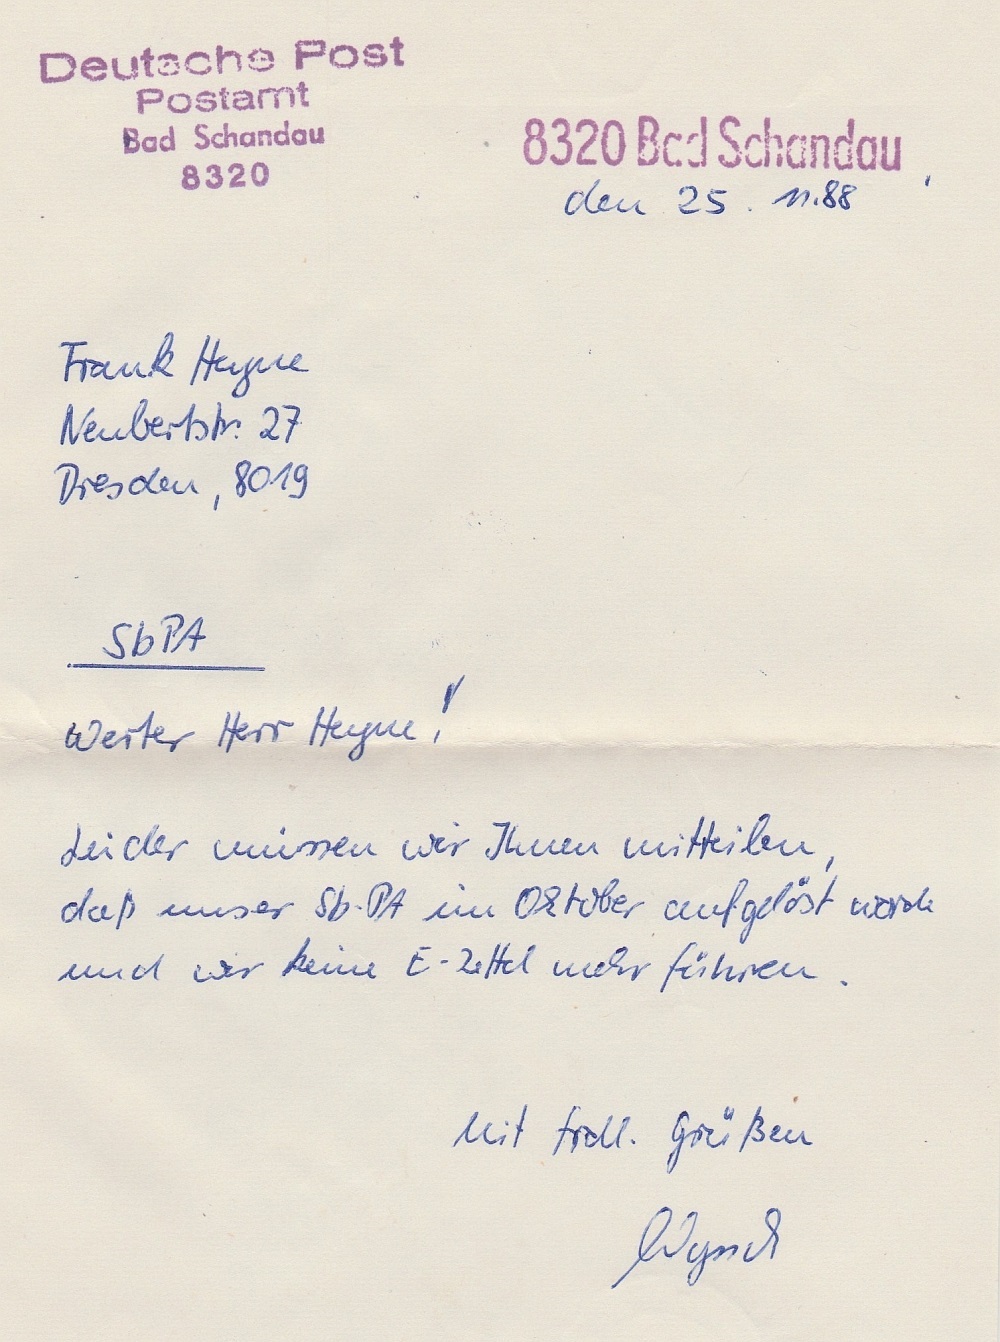 Deutsche Post
Postamt
Bad Schandau
8320
8320 Bad Schandau
den 25. 11.88
Frank Heyne
Neubertstr. 27
Dresden, 8019
SbPA
Werter Herr Heyne!
Leider müssen wir Ihnen mitteilen,
daß unser Sb.-PA im Oktober aufgelöst wurde
und wir keine E-Zettel mehr führen.
Mit frdl. Grüßen